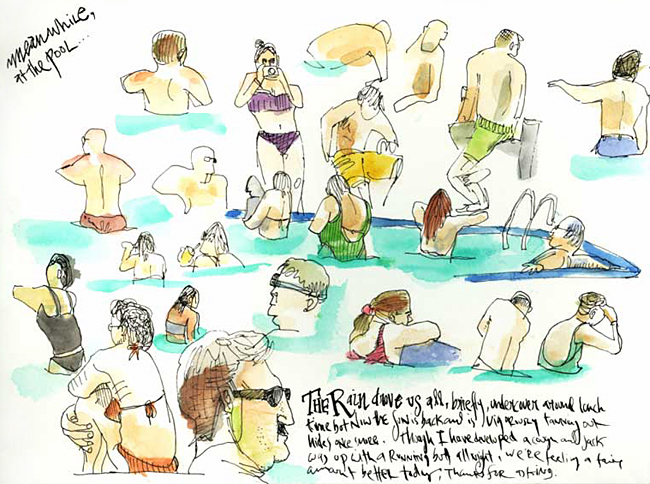 meanwhile,
at the POOL...
THE RAin drove us all, briefly, undercover around lunch
time but Now the Sun is back and is vigorously tanning our
hides once more. Though I have developed a cough and Jack
was up with a Running butt all night, we're feeling a fair
amount better today, Thanks for asking.